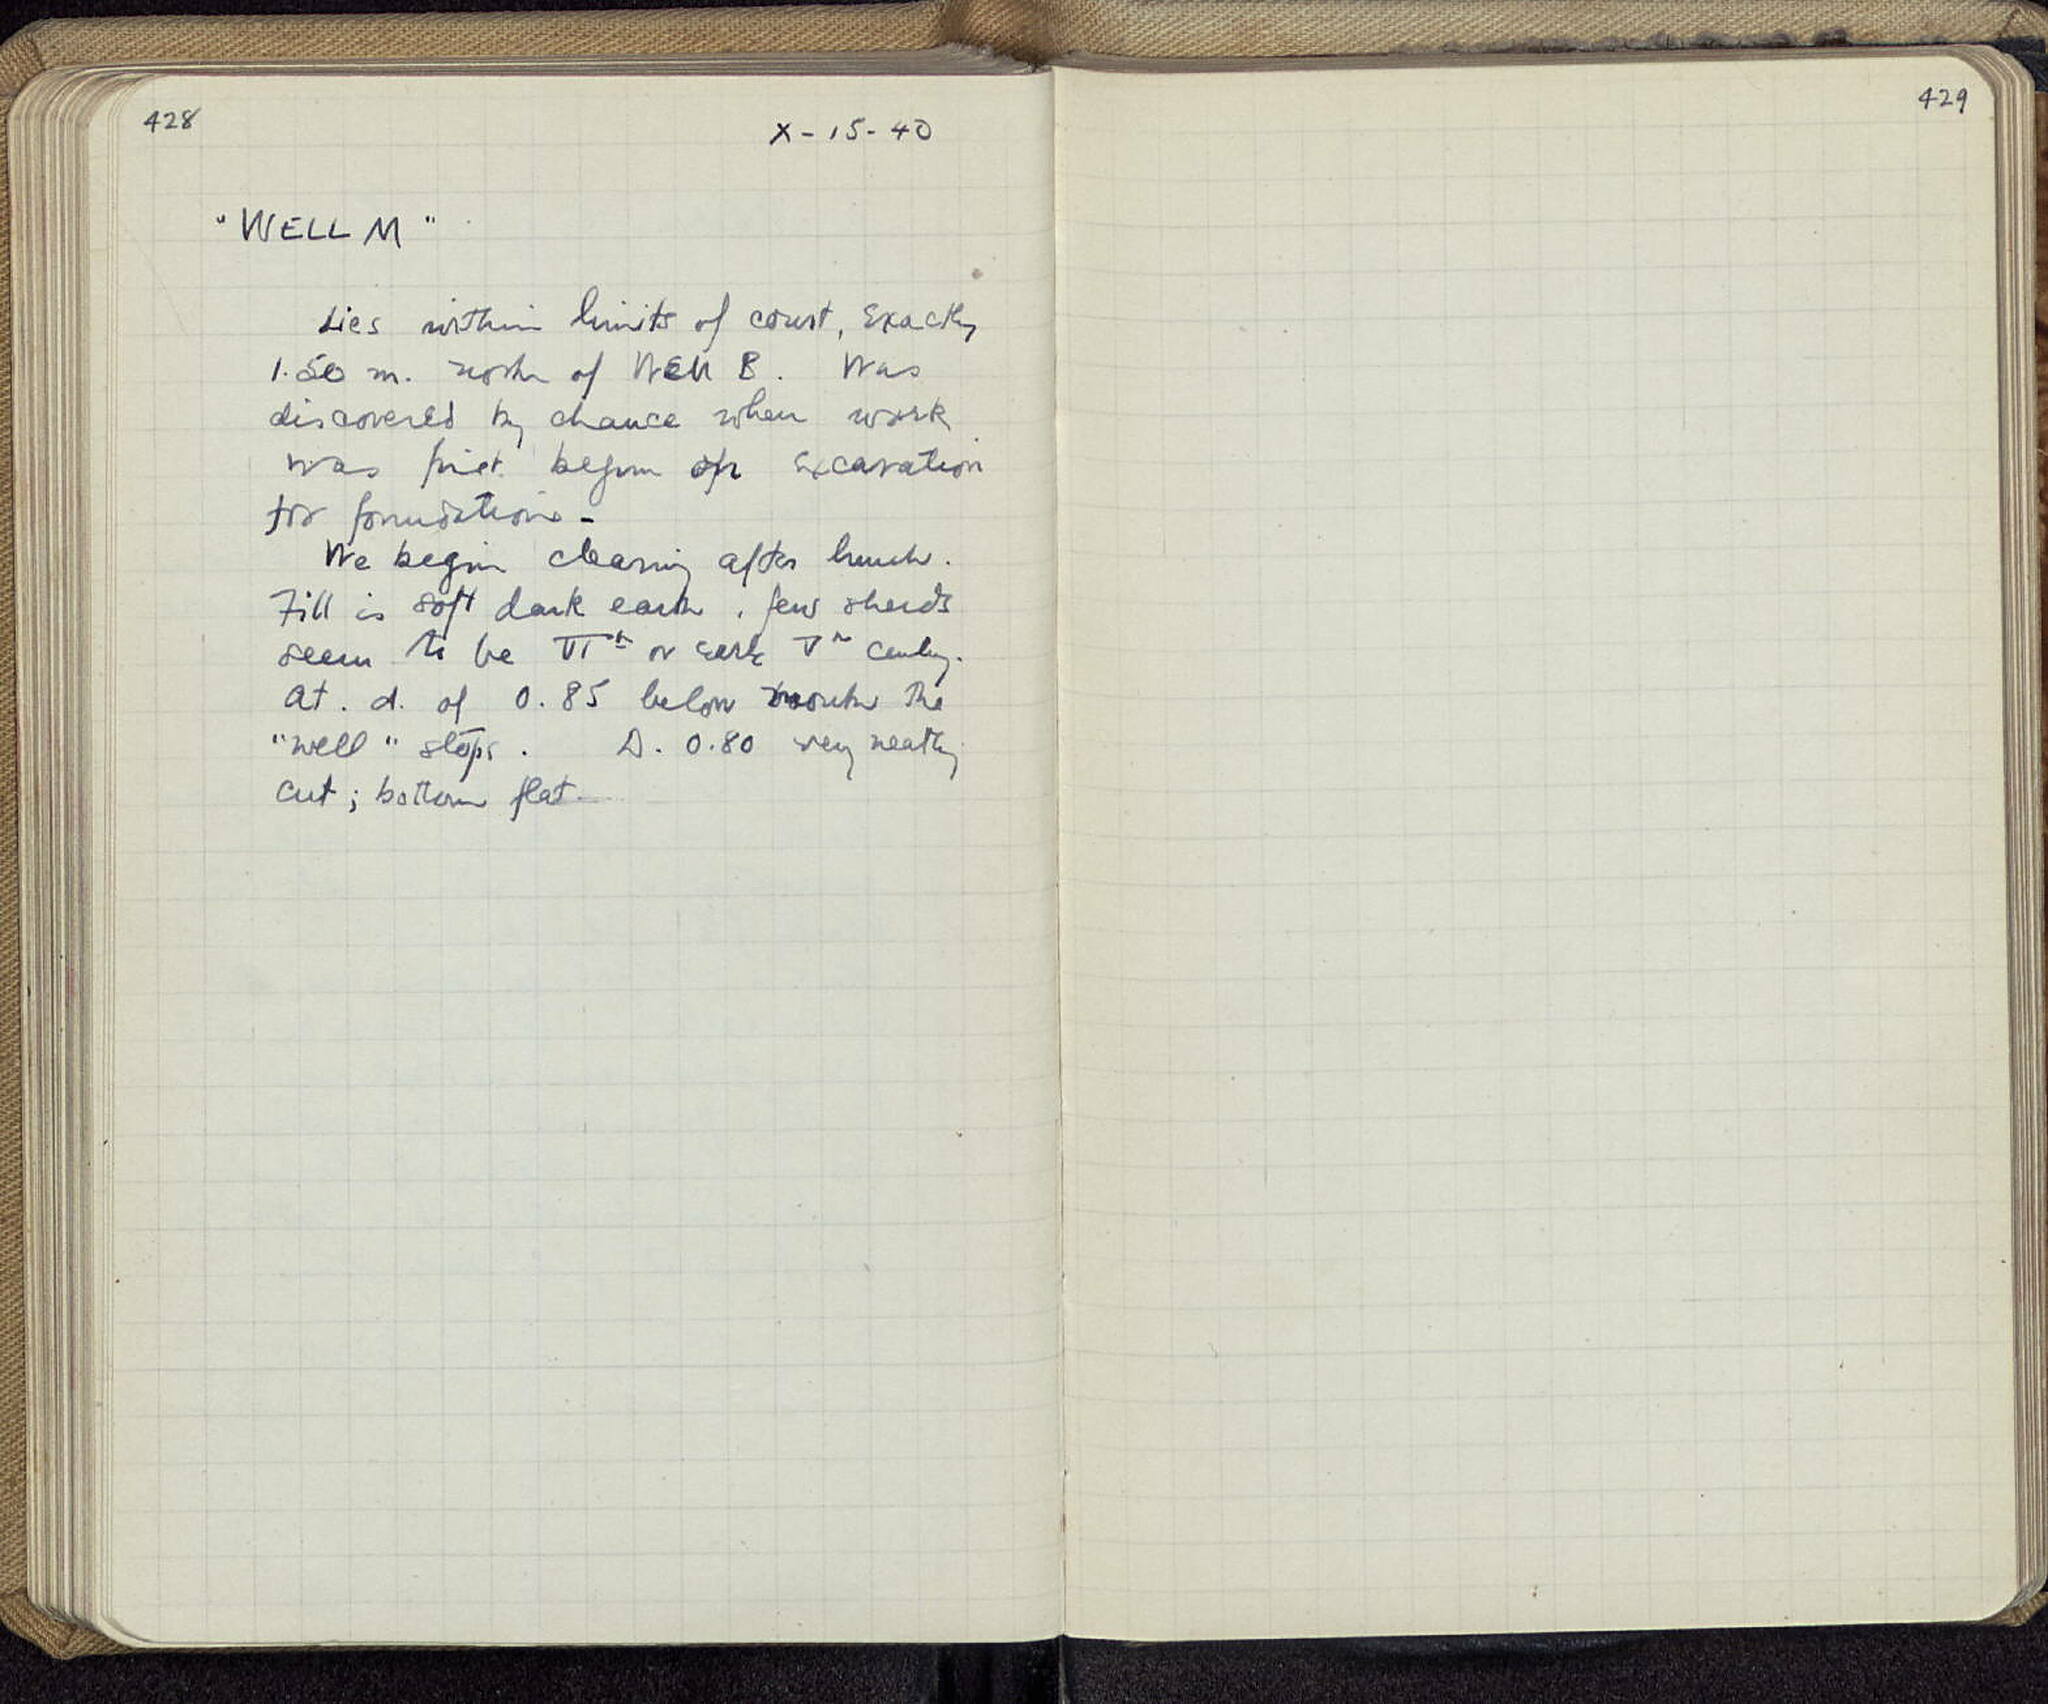 428
X-15-40
"WELL M"
Lies within limits of court, exactly
1.50 m. north of Well B. Was
discovered by chance when work
was first begun on excavation
for foundations-
We begin clearing after lunch.
Fill is soft dark earth, few sherds
seem to be VIth or early Vth century.
At. d. of 0.85 below mouth the
"well" stops. D. 0.80 very neatly
cut; bottom flat.
429